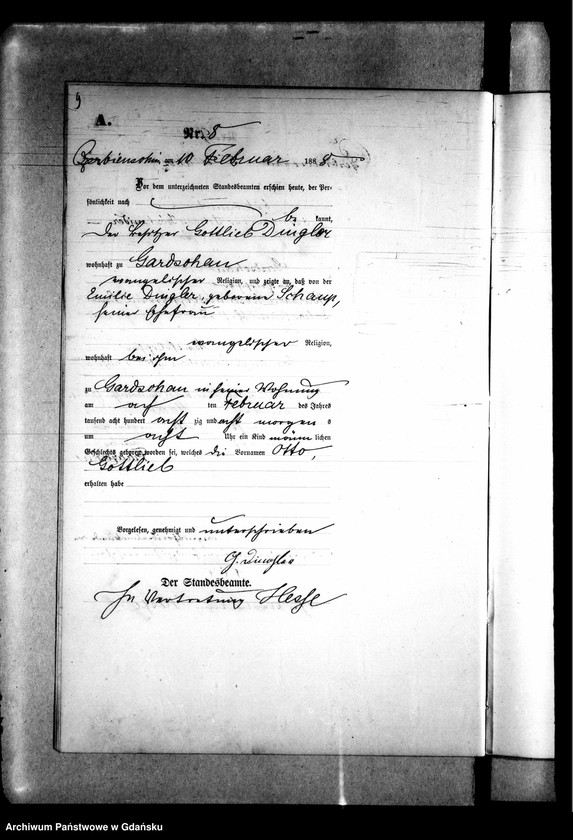 9
A.
Nr. 8
am 10 Februar 1888.
Vor dem unterzeichneten Standesbeamten erschien heute, der Per-
sönlichkeit nach
be kannt,
Der Besitzer Gottlieb Dingler
wohnhaft zu Gardschau
evangelischer Religion, und zeigte an, daß von der
Emilie Dingler, geborenen Schaup,
seiner Ehefrau
evangelischer Religion,
wohnhaft bei ihm
zu Gardschau in seiner Wohnung
am acht ten Februar des Jahres
tausend acht hundert acht zig und acht morgens
um acht Uhr ein Kind männ lichen
Geschlechts geboren worden sei, welches die Vornamen Otto,
Gottlieb
erhalten habe
Vorgelesen, genehmigt und unterschrieben
G. Dingler
Der Standesbeamte.
In Vertretung Hesse
Archiwum Państwowe w Gdańsku